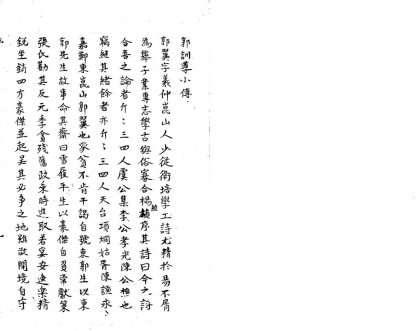 郭訓導小傳
郭翼字羲仲崑山人少從衛培學工詩尤精於易不屑
為舉子業專志學古與俗寡合楊維楨序其詩曰今之詩
合吾之論者斤斤三四人虞公集李公孝光陳公樵也
竊繼其緒餘者亦斤斤三四人天台項炯姑胥陳謙永
嘉鄭東崑山郭翼也家貧不肯干謁自號東郭生以東
郭先生故事命其齋曰雪履平生以豪傑自負常獻策
張氏勸其反元季貪殘舊政乘時進取若妄安逸樂精
銳坐銷四方豪傑並起吳其必爭之地雖欲閉境自守